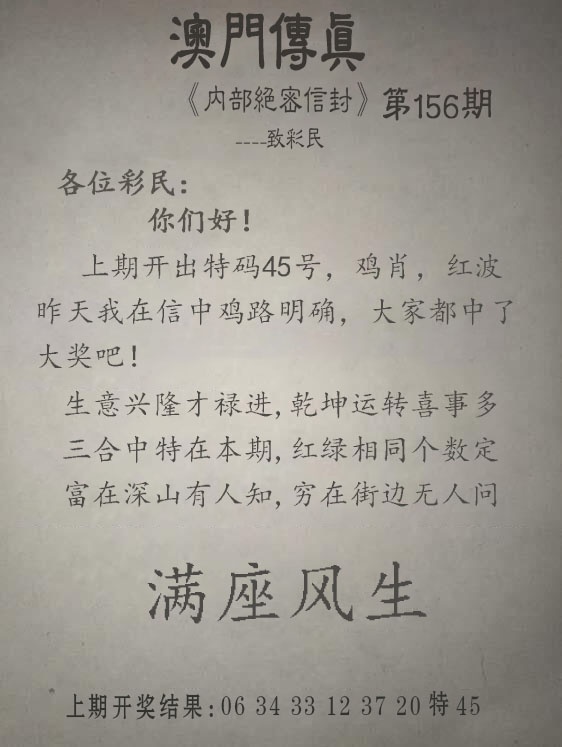 澳門傳真
《内部絕密信封》第156期
----致彩民
各位彩民：
你们好！
上期开出特码45号，鸡肖，红波
昨天我在信中鸡路明确，大家都中了
大奖吧！
生意兴隆才禄进,乾坤运转喜事多
三合中特在本期,红绿相同个数定
富在深山有人知,穷在街边无人问
满座风生
上期开奖结果:06 34 33 12 37 20 特 45